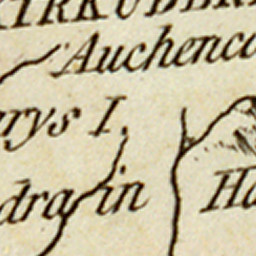 IRKUDBRI
Auchenca
rys I.
dra in
Ha